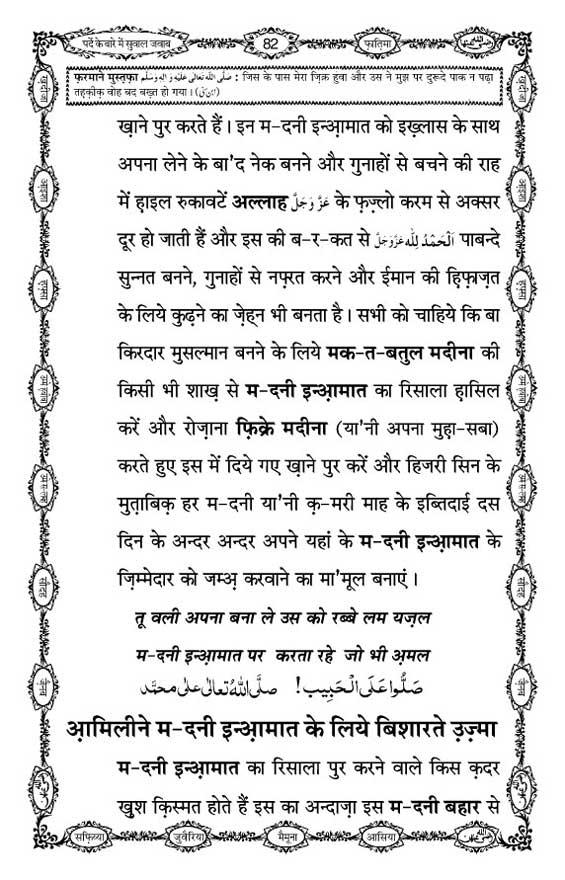 पर्दे के बारे में सुवाल जवाब
82
फ़ातिमा
फ़रमाने मुस्तफ़ा صَلَّى اللّٰهُ تَعَالٰى عَلَيْهِ وَاٰلِهٖ وَسَلَّم : जिस के पास मेरा ज़िक्र हुवा और उस ने मुझ पर दुरूदे पाक न पढ़ा
तहक़ीक़ वोह बद बख़्त हो गया ।
ख़ाने पुर करते हैं । इन म-दनी इन्आ़मात को इख़्लास के साथ
अपना लेने के बा'द नेक बनने और गुनाहों से बचने की राह
में ह़ाइल रुकावटें अल्लाह عَزَّوَجَلَّ के फ़ज़्लो करम से अक्सर
दूर हो जाती हैं और इस की ब-र-कत से اَلْحَمْدُ لِلّٰه عَزَّوَجَلَّ पाबन्दे
सुन्नत बनने, गुनाहों से नफ़्रत करने और ईमान की ह़िफ़ाज़त
के लिये कुढ़ने का ज़ेह्न भी बनता है । सभी को चाहिये कि बा
किरदार मुसल्मान बनने के लिये मक-त-बतुल मदीना की
किसी भी शाख़ से म-दनी इन्आ़मात का रिसाला ह़ासिल
करें और रोज़ाना फ़िक्रे मदीना (या'नी अपना मुह़ा-सबा)
करते हुए इस में दिये गए ख़ाने पुर करें और हिजरी सिन के
मुत़ाबिक़ हर म-दनी या'नी क़-मरी माह के इब्तिदाई दस
दिन के अन्दर अन्दर अपने यहां के म-दनी इन्आ़मात के
ज़िम्मेदार को जम्अ़ करवाने का मा'मूल बनाएं ।
तू वली अपना बना ले उस को रब्बे लम यज़ल
म-दनी इन्आ़मात पर करता रहे जो भी अ़मल
صَلُّوا عَلَى الْحَبِيب! صلَّى اللهُ تعالٰى على محمَّد
आ़मिलीने म-दनी इन्आ़मात के लिये बिशारते उ़ज़्मा
म-दनी इन्आ़मात का रिसाला पुर करने वाले किस क़दर
ख़ुश क़िस्मत होते हैं इस का अन्दाज़ा इस म-दनी बहार से
सफ़िय्या
जुवैरिया
मैमूना
आसिया